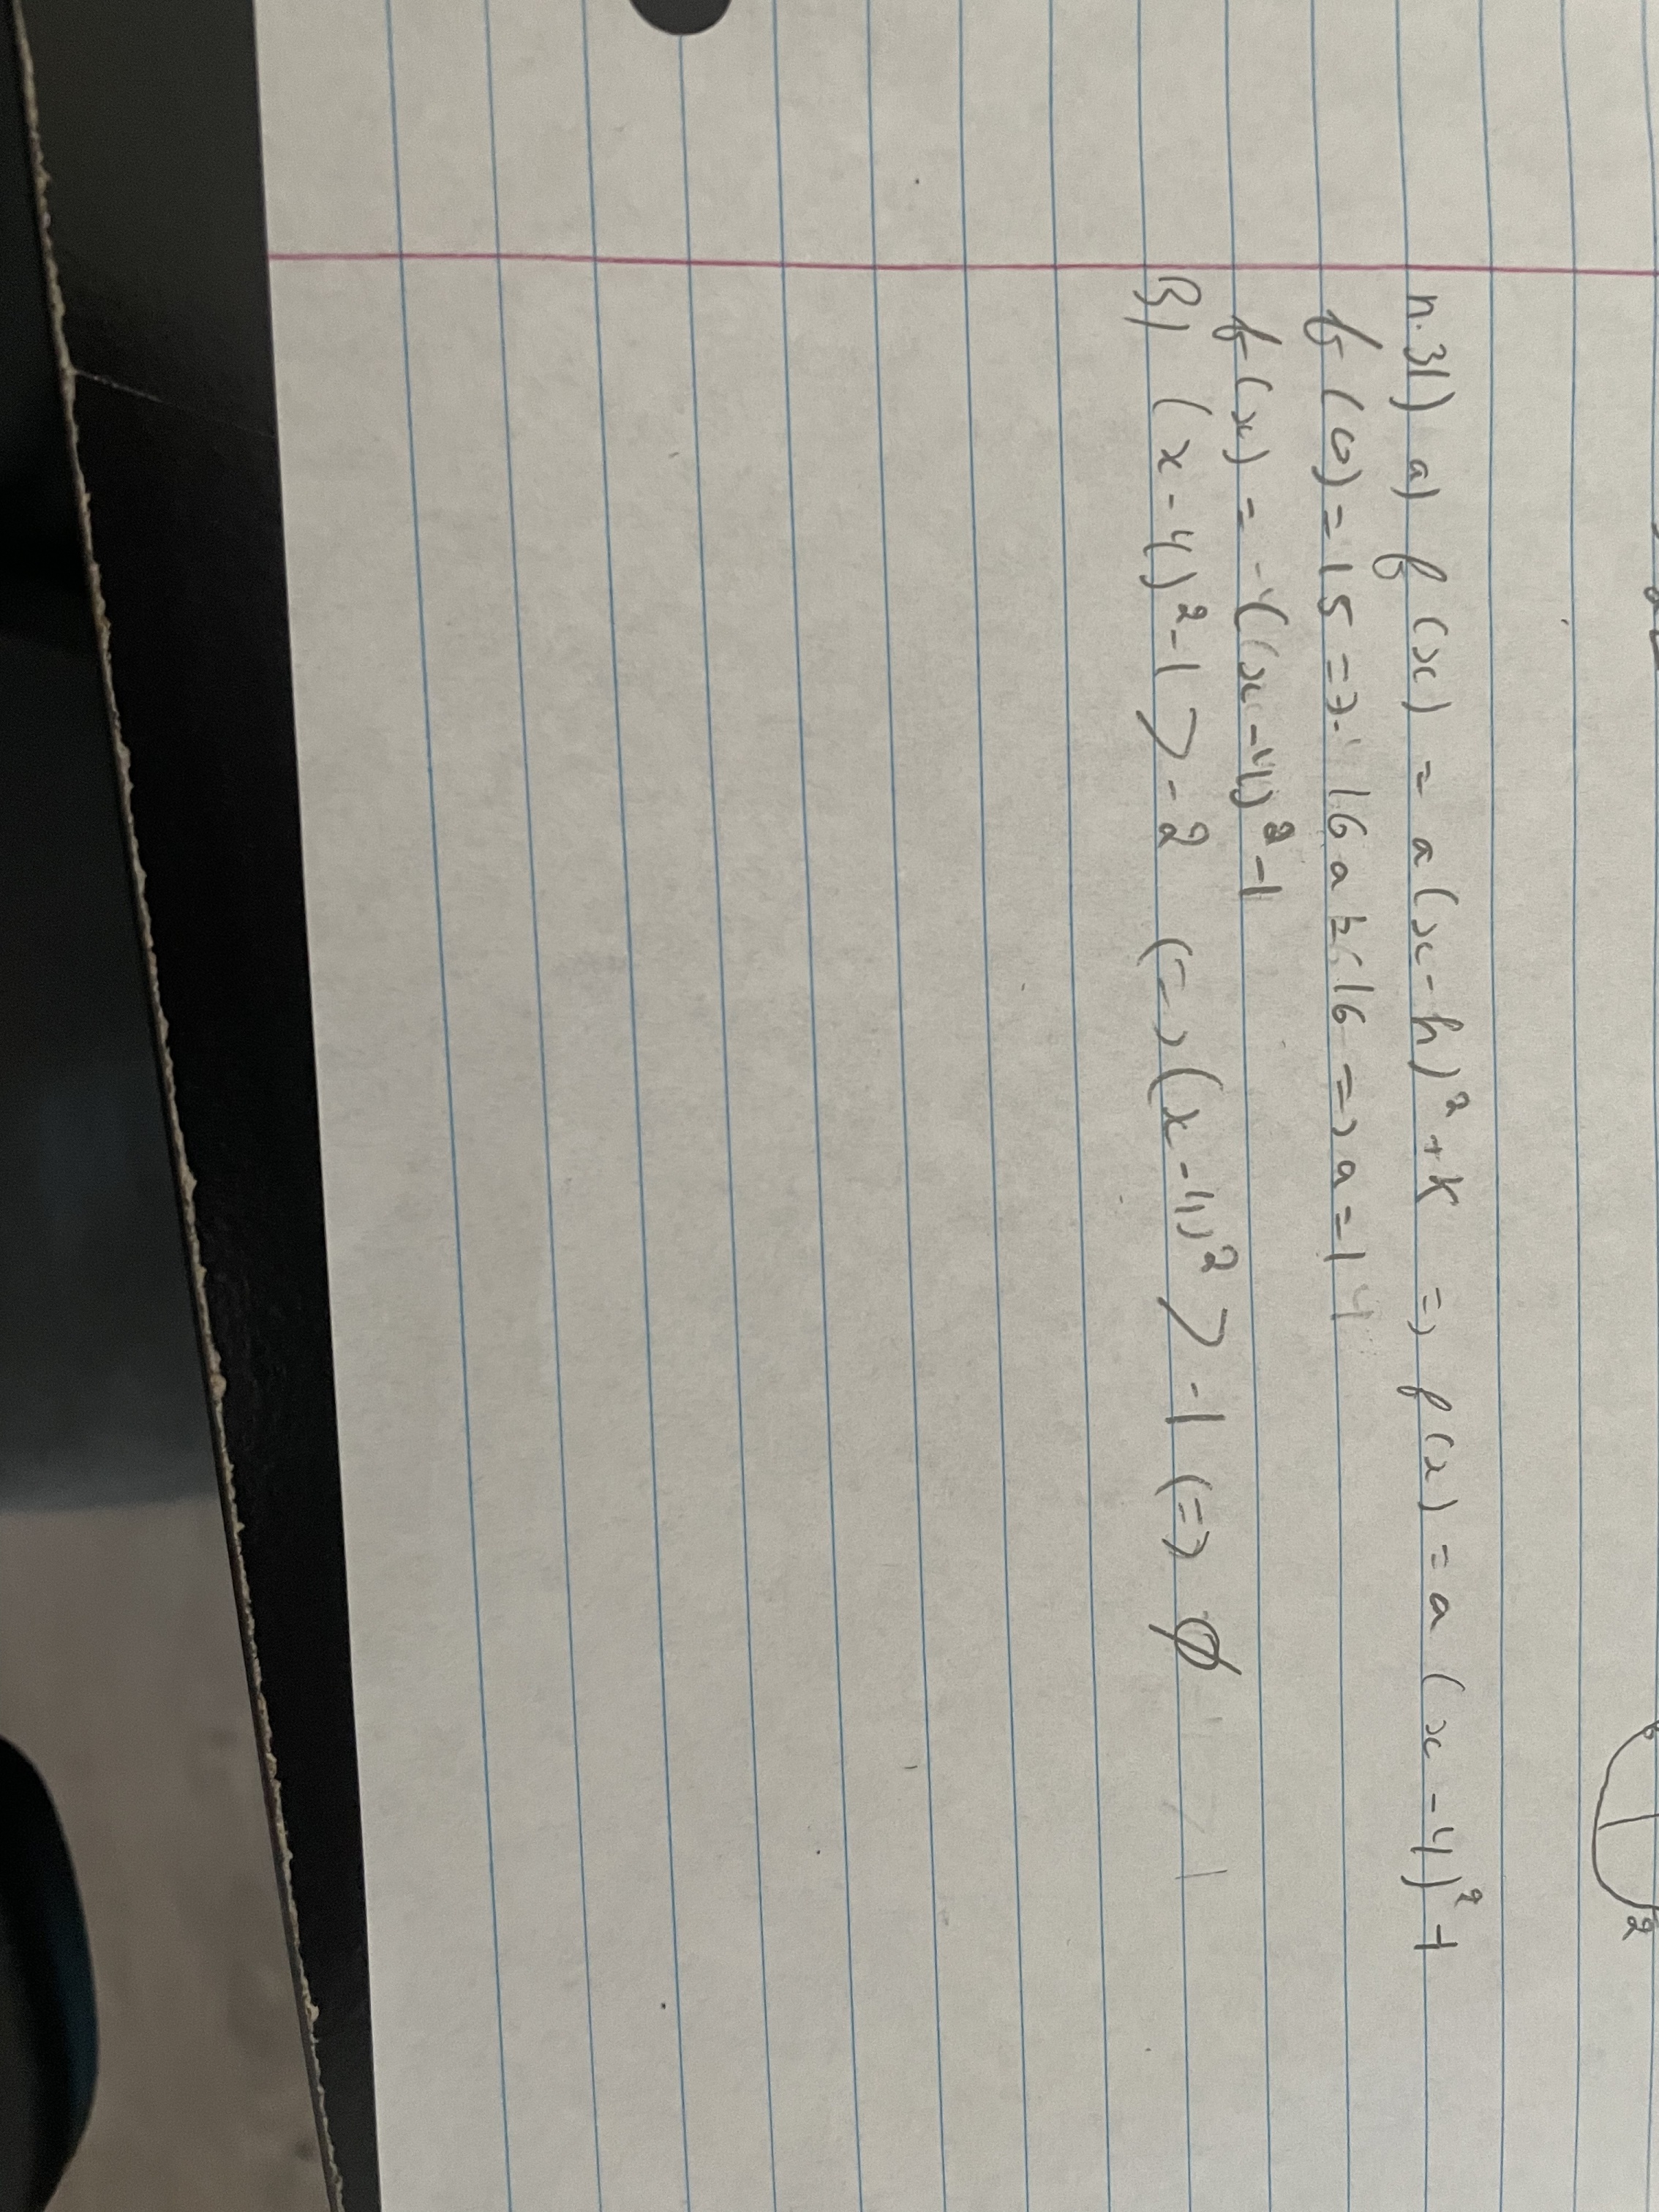 n.31) a) f(x) = a(x-h)²+k => f(x) = a(x-4)²+
f(0)=15 => 16a = 16 => a=1
f(x) = (x-4)²-1
B) (x-4)²-1 > -2 (=) (x-4)² > -1 (=) ∅
2